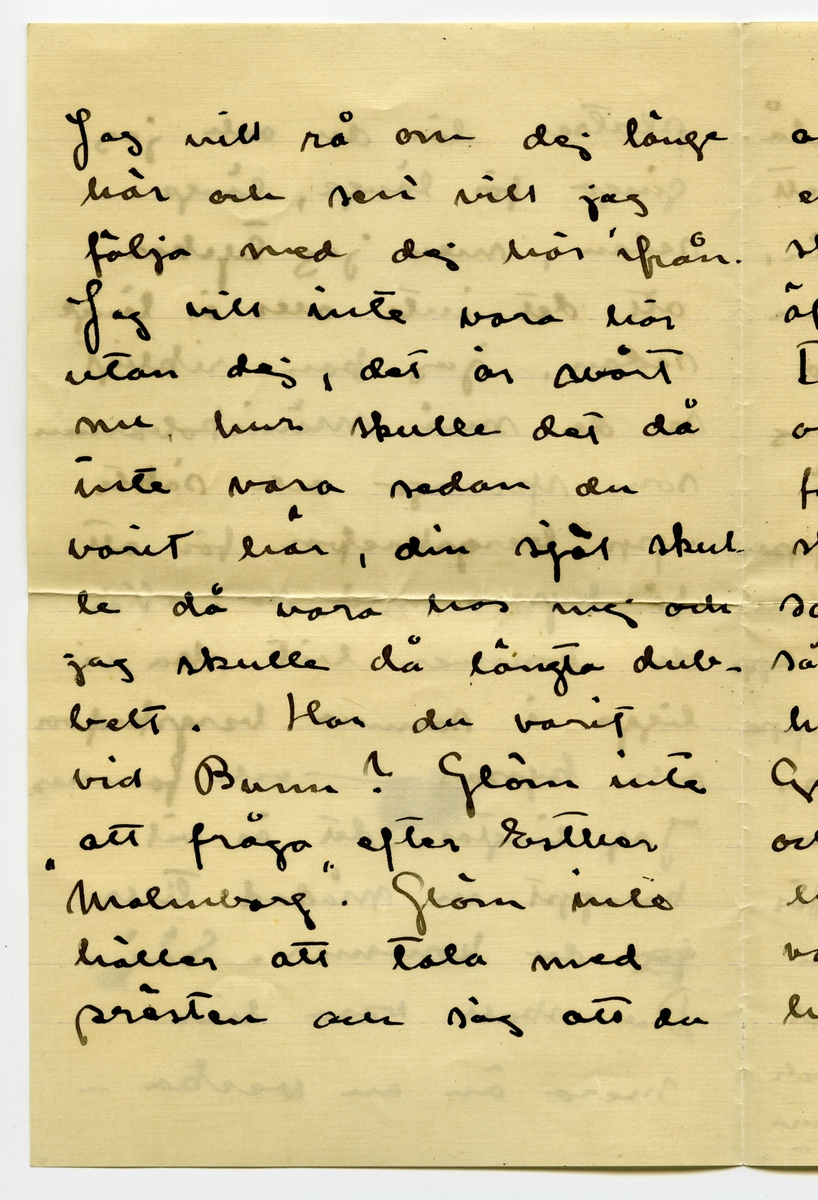 Jag vill rå om dej länge
här och sen vill jag
följa med dej här ifrån.
Jag vill inte vara här
utan dej, det är svårt
nu, hur skulle det då
inte vara sedan du
varit här, din själ skul-
le då vara hos mej och
jag skulle då längta dub-
belt. Har du varit
vid Bunn? Glöm inte
att fråga efter Esther
"Malmborg". Glöm inte
häller att tala med
prästen och säg att du